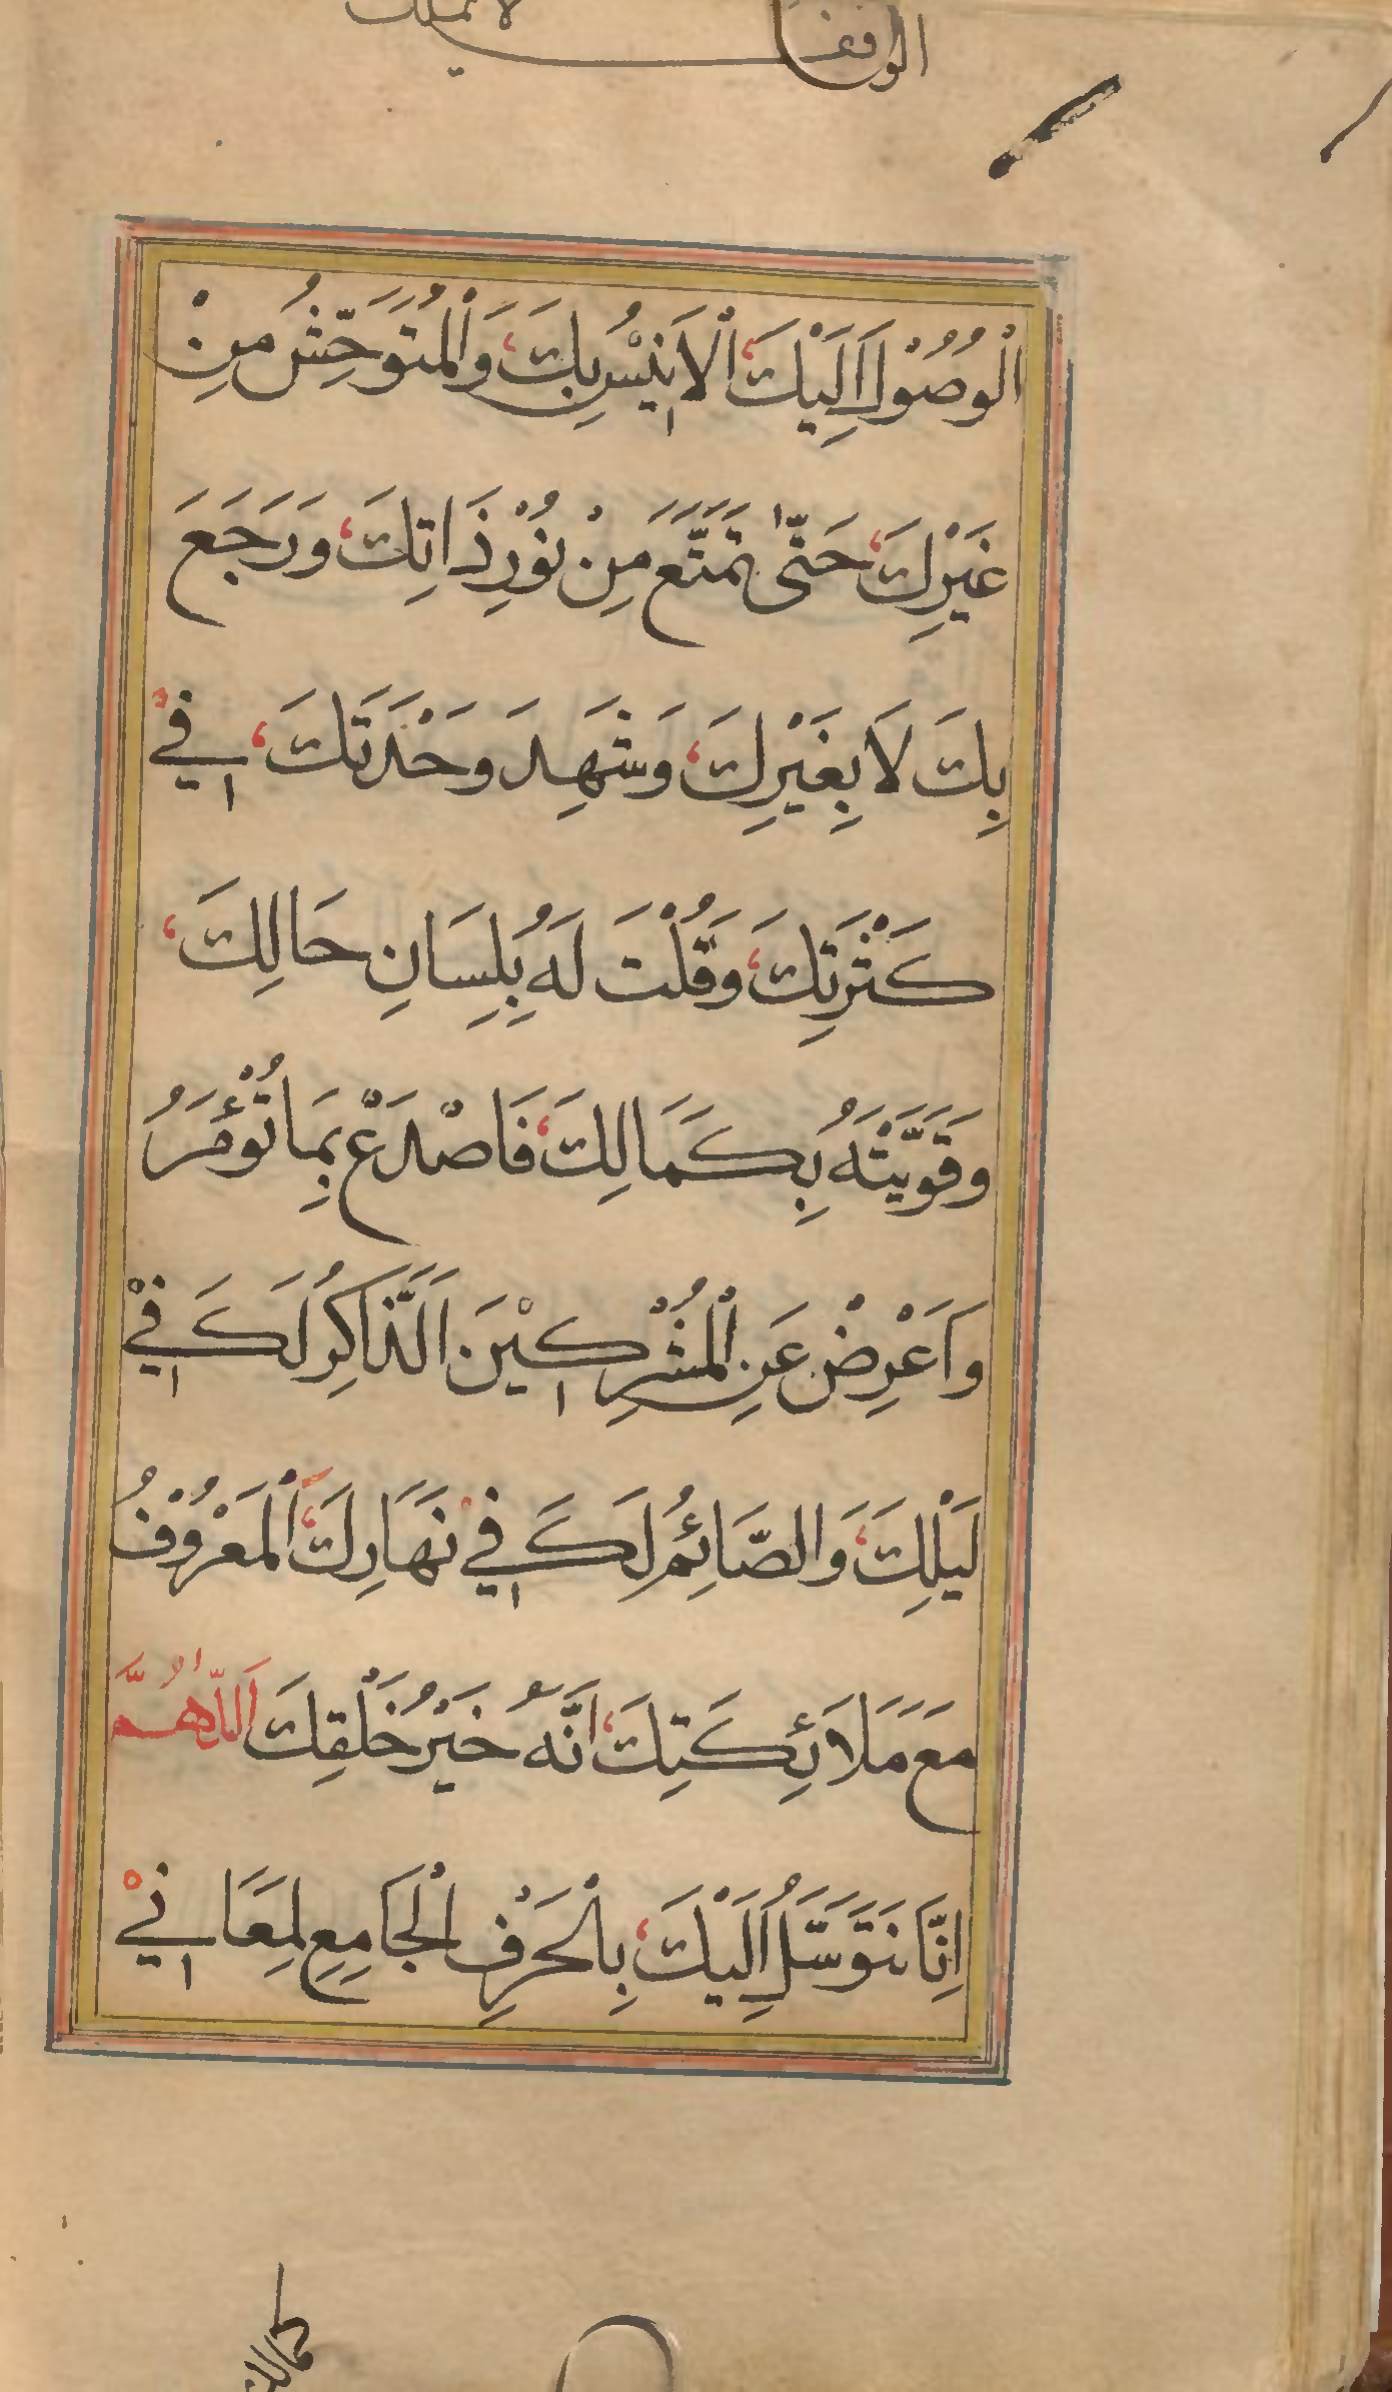 الوقف لا تملك
الْوُصُوْلَ اِلَيْكَ الْاَنِيْسِ بِكَ وَالْمُتَوَحِّشُ مِنْ
غَيْرِكَ حَتّٰى تَمَتَّعَ مِنْ نُوْرِ ذَاتِكَ وَرَجَعَ
بِكَ لَا بِغَيْرِكَ وَشَهِدَ وَحْدَتَكَ فِيْ
كَثْرَتِكَ وَقُلْتَ لَهُ بِلِسَانِ حَالِكَ
وَقَوَّيْتَهُ بِكَمَالِكَ فَاصْدَعْ بِمَا تُؤْمَرُ
وَاَعْرِضْ عَنِ الْمُشْرِكِيْنَ اَلذَّاكِرُ لَكَ فِيْ
لَيْلِكَ وَالصَّائِمُ لَكَ فِيْ نَهَارِكَ الْمَعْرُوْفُ
مَعَ مَلَائِكَتِكَ اَنَّهُ خَيْرُ خَلْقِكَ اَللّٰهُمَّ
اِنَّا نَتَوَسَّلُ اِلَيْكَ بِالْحَرْفِ الْجَامِعِ لِمَعَانِيْ
كمالك